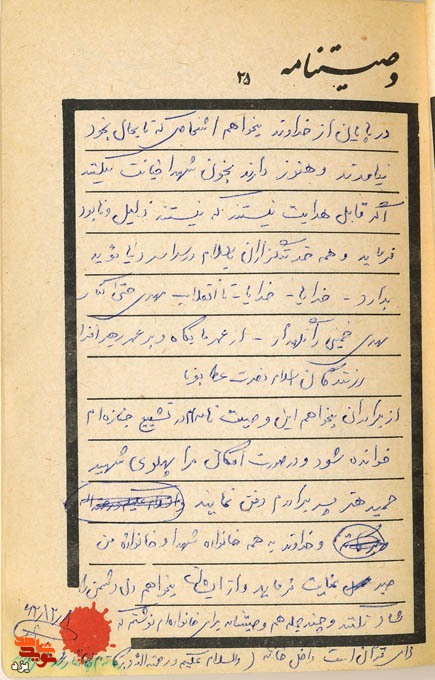 وصیتنامه
۲۵
در پایان از خداوند میخواهم اشخاصی که تا بحال بخود
نیامدند و هنوز دارند بخون شهدا خیانت میکنند
اگر قابل هدایت نیستند که نیستند ذلیل و نابود
فرماید و همه خدمتگزاران باسلام در سراسر دنیا مؤید
بدارد - خدایا - خدایا تا انقلاب مهدی حتی کنار
مهدی خمینی را نگهدار - از عمر ما بکاه و بر عمر رهبر افزا
رزمندگان اسلام نصرت عطا بفرما
از برادران میخواهم این وصیت نامه در تشییع جنازه ام
خوانده شود و در صورت امکان مرا پهلوی شهید
حمید هنر پسر برادرم دفن نمایند
و خداوند به همه خانواده شهدا و خانواده من
صبر عنایت فرماید و از ایشان میخواهم دل دشمن را
شاد نکنند و چند جمله هم وصیتنامه برای خانواده ام نوشتم که
لای قرآن است داخل خانه (والسلام علیکم و رحمة الله و برکاته